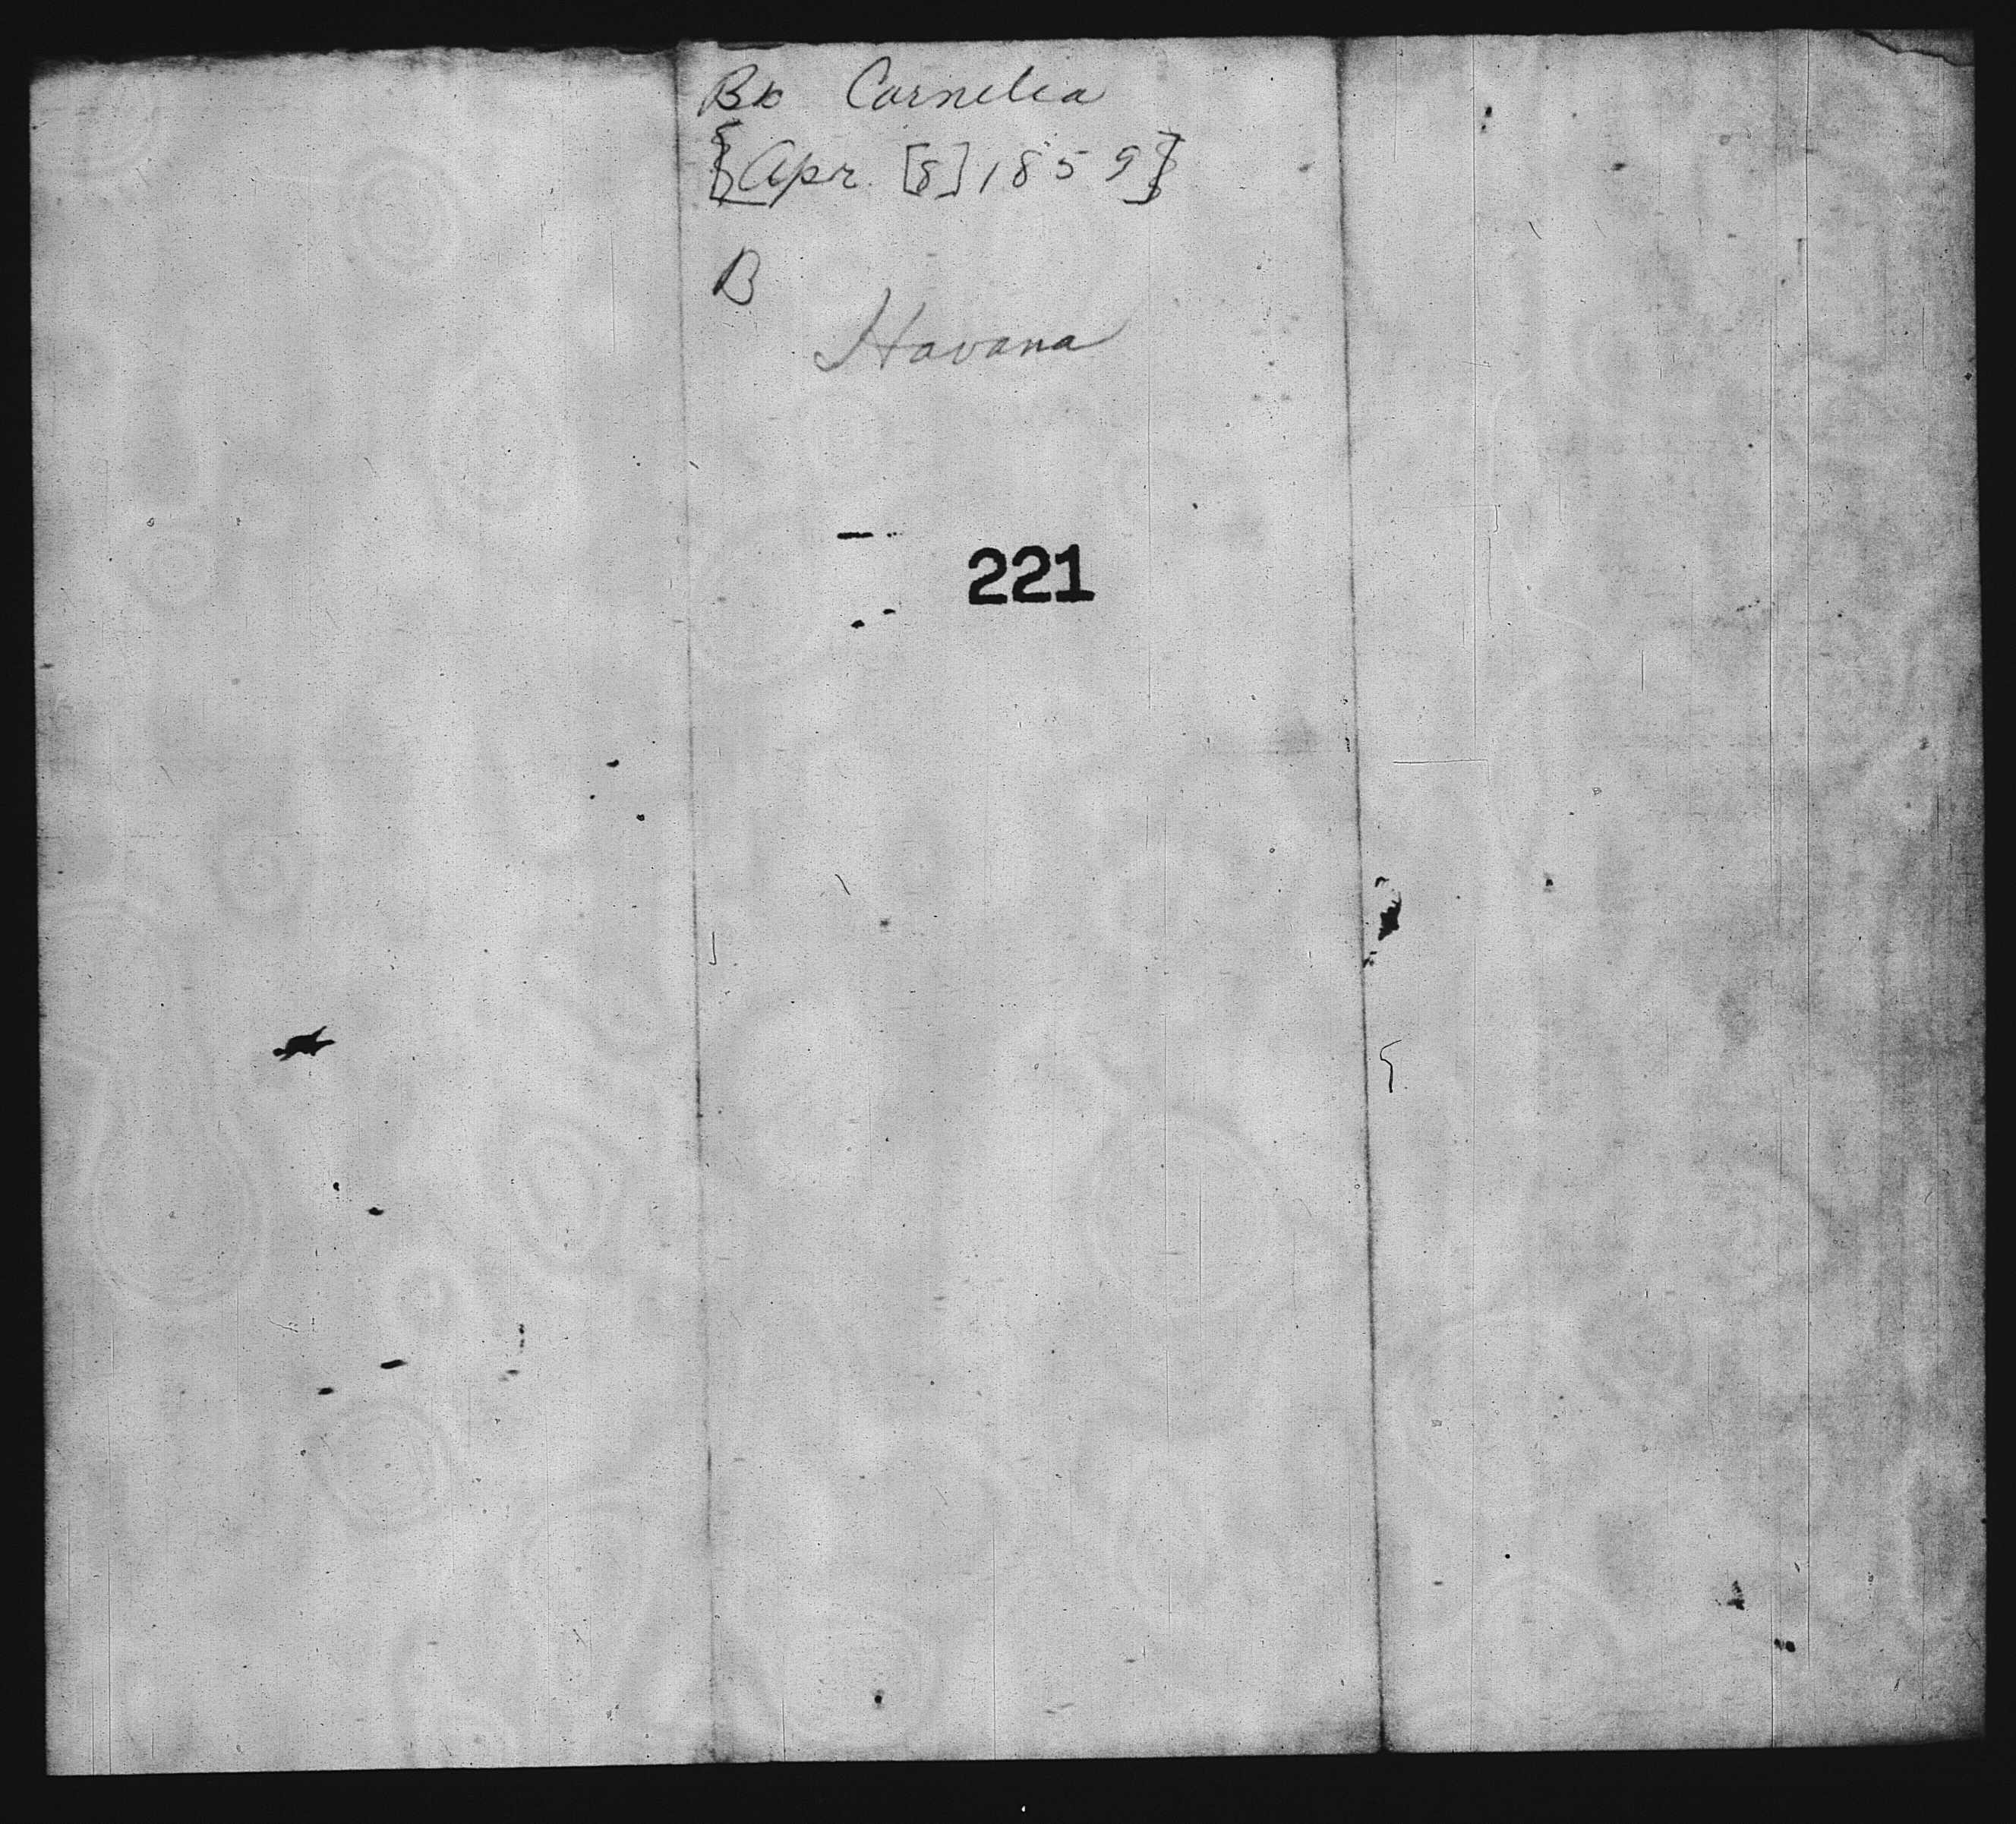 Bk Cornelia
[Apr. [8] 1859]
B
Havana
221